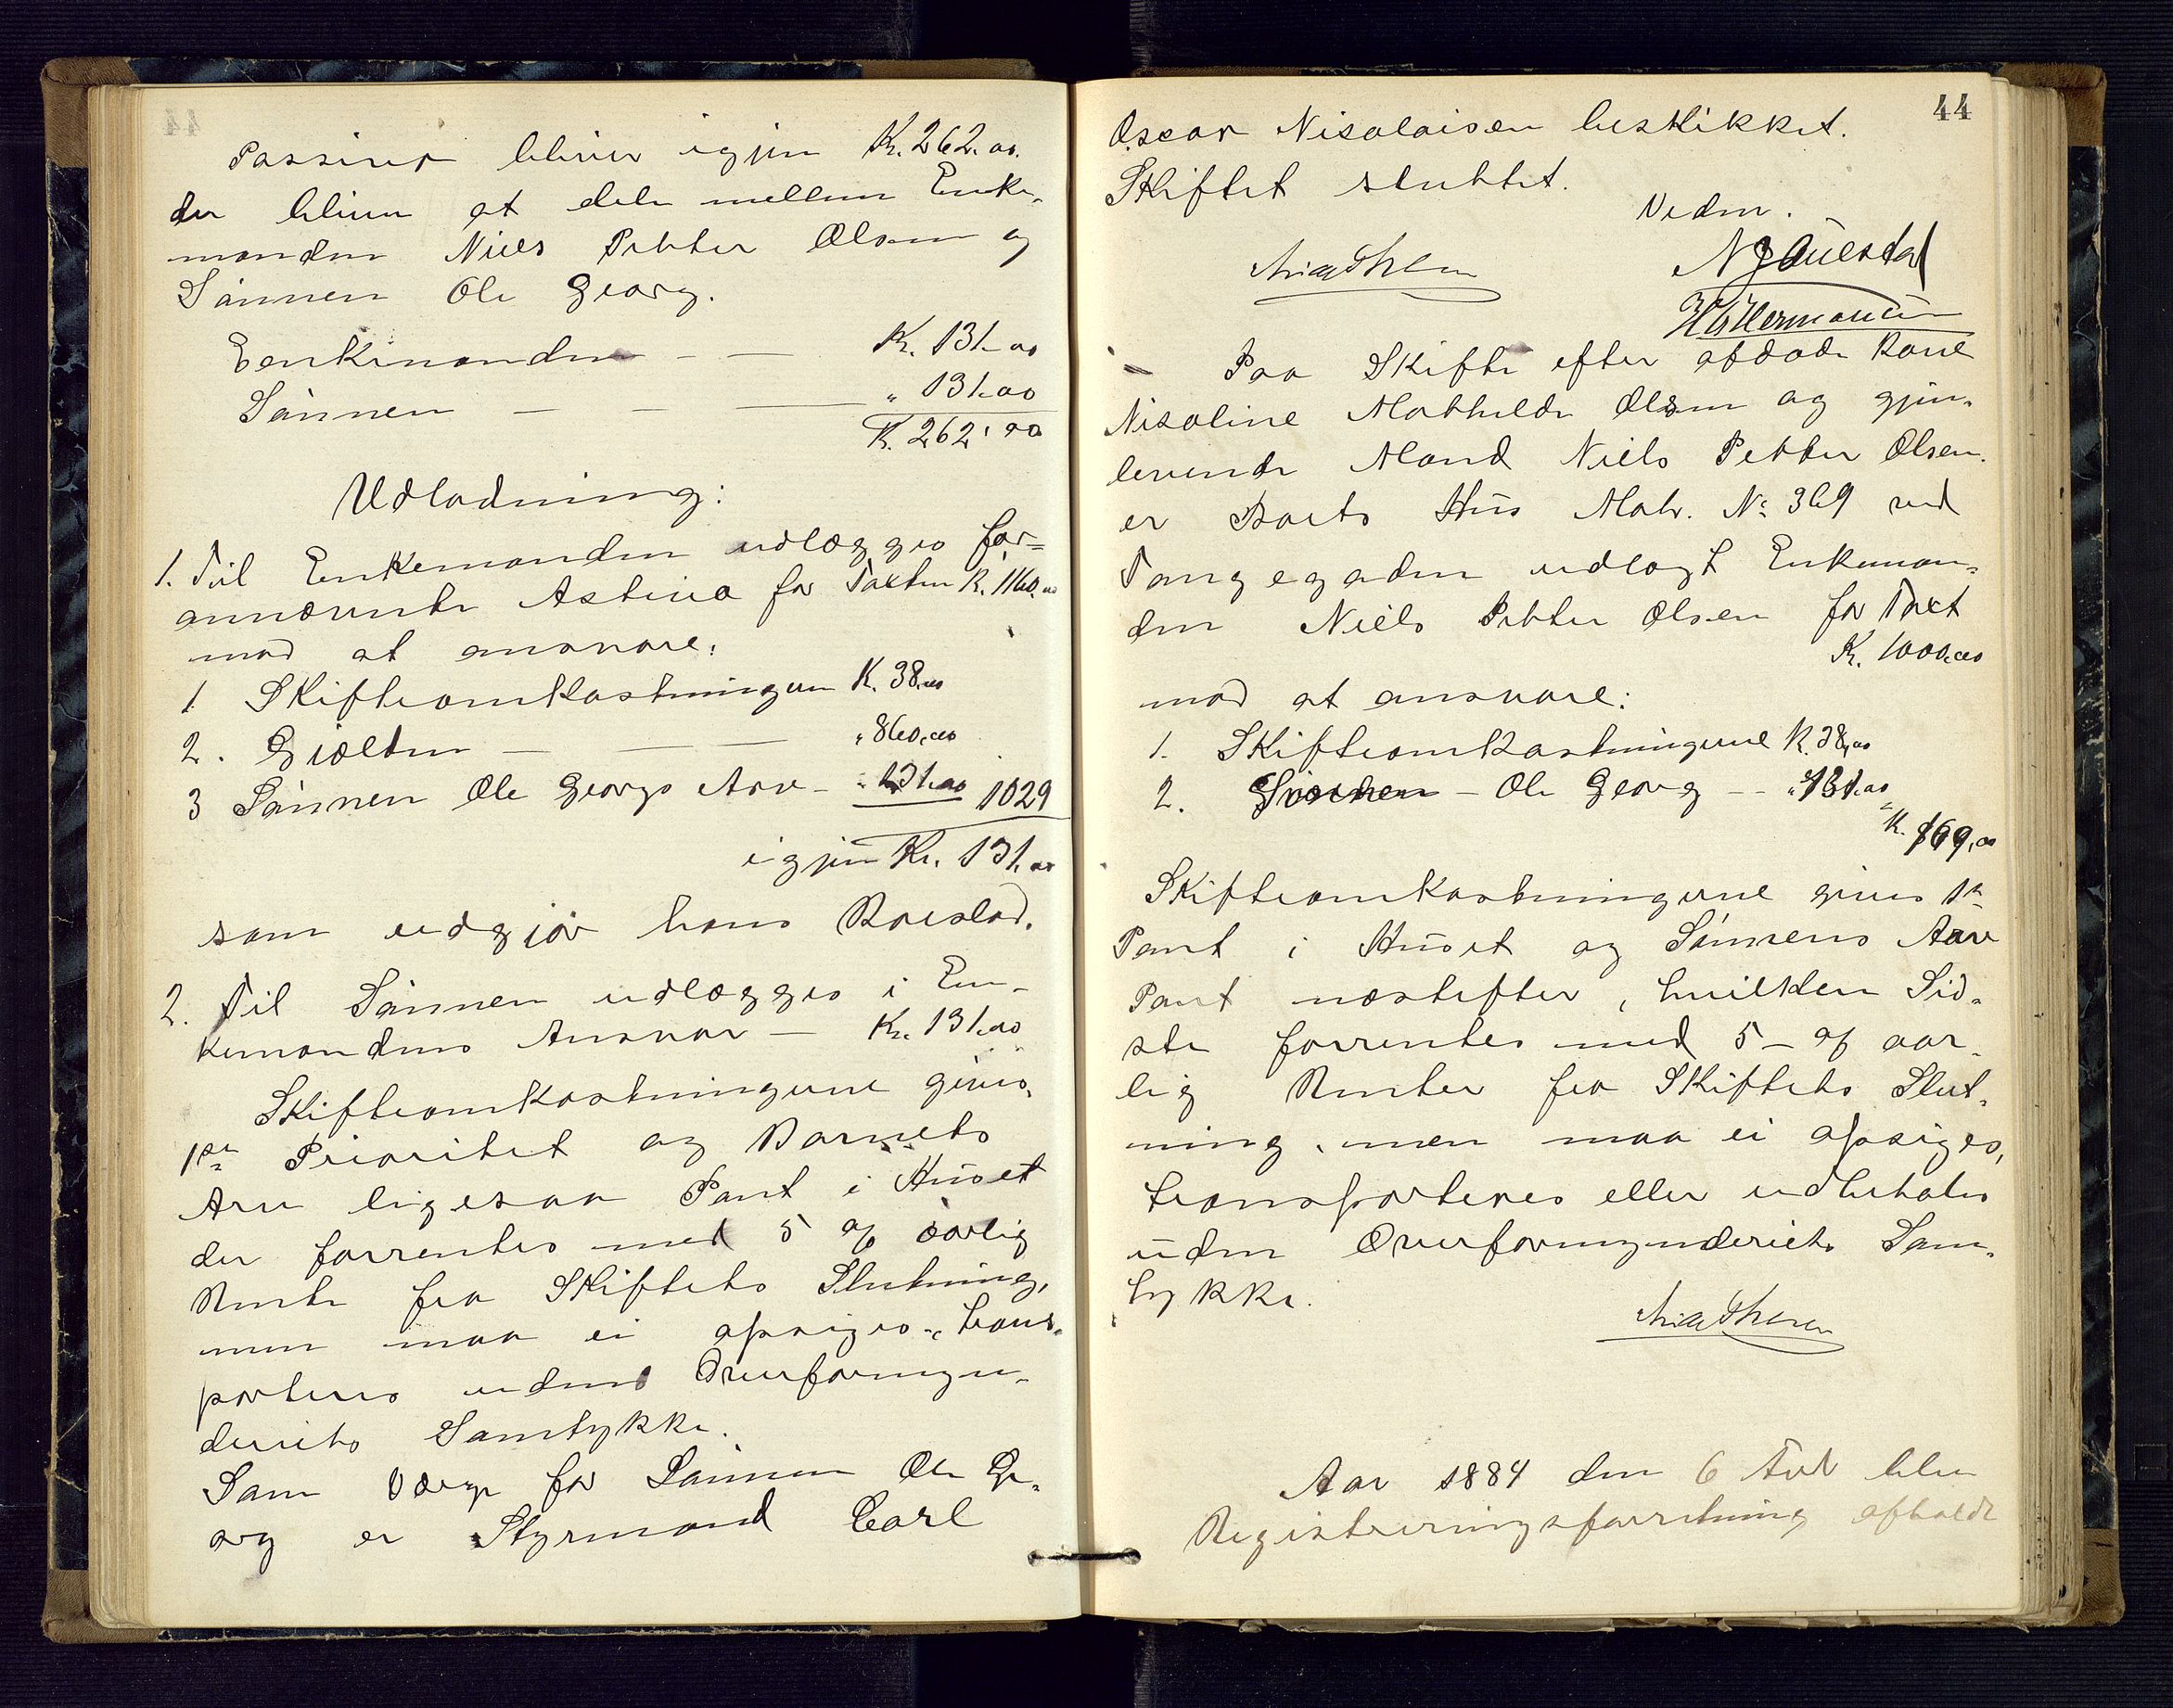 Passiver bliver igjen K. 262.00.
der bliver at dele mellem Enke-
manden Niels Petter Olsen og
Sönnen Ole Georg.
Eenkemanden - — K. 131.00
Sönnen — — — " 131.00
K. 262.00
Udlodning:
1. Til Enkemanden udlægges for-
annævnte Activa for Taxten K. 1160.00
mod at ansvare:
1 Skifteomkostningerne K. 38.00
2. Gjælden — — — " 860.00
3 Sönnen Ole Georgs Arv - " 131.00 1029
igjen Kr. 131.00
som udgjör hans Boeslod.
2. Til Sönnen udlægges i En-
kemandens Ansvar — Kr. 131.00
Skifteomkostningerne gives
1ste Prioritet og Barnets
Arv ligesaa Pant i Huset
der forrentes med 5 % aarlig
Rente fra Skiftets Slutning,
men maa ei opsiges, trans-
porteres uden Overformyn-
deriets Samtykke.
Som Værge for Sönnen Ole Ge-
org er Styrmand Carl
44
Oscar Nicolaisen beskikket.
Skiftet sluttet.
Vedm.
Paa Skifte efter afdöde Kone
Nicoline Mathilde Olsen og gjen-
levende Mand Niels Petter Olsen
er Boets Huus Matr. No 369 ved
Tangegaden udlagt Enkeman-
den Niels Petter Olsen for Taxt
K. 1000.00
mod at ansvare:
1. Skifteomkostningerne K. 38,00
2. Ole Georg - - " 131.00
K. 169,00
Skifteomkostningerne gives 1ste
Pant i Huset og Sönnens Arv
Pant næstefter, hvilken Sid-
ste forrentes med 5 % aar-
lig Renter fra Skiftets Slut-
ning, men maa ei opsiges,
transporteres eller udbetales
uden Overformynderiets Sam-
tykke.
Aar 1884 den 6 Feb blev
Registreringsforretning afholdt